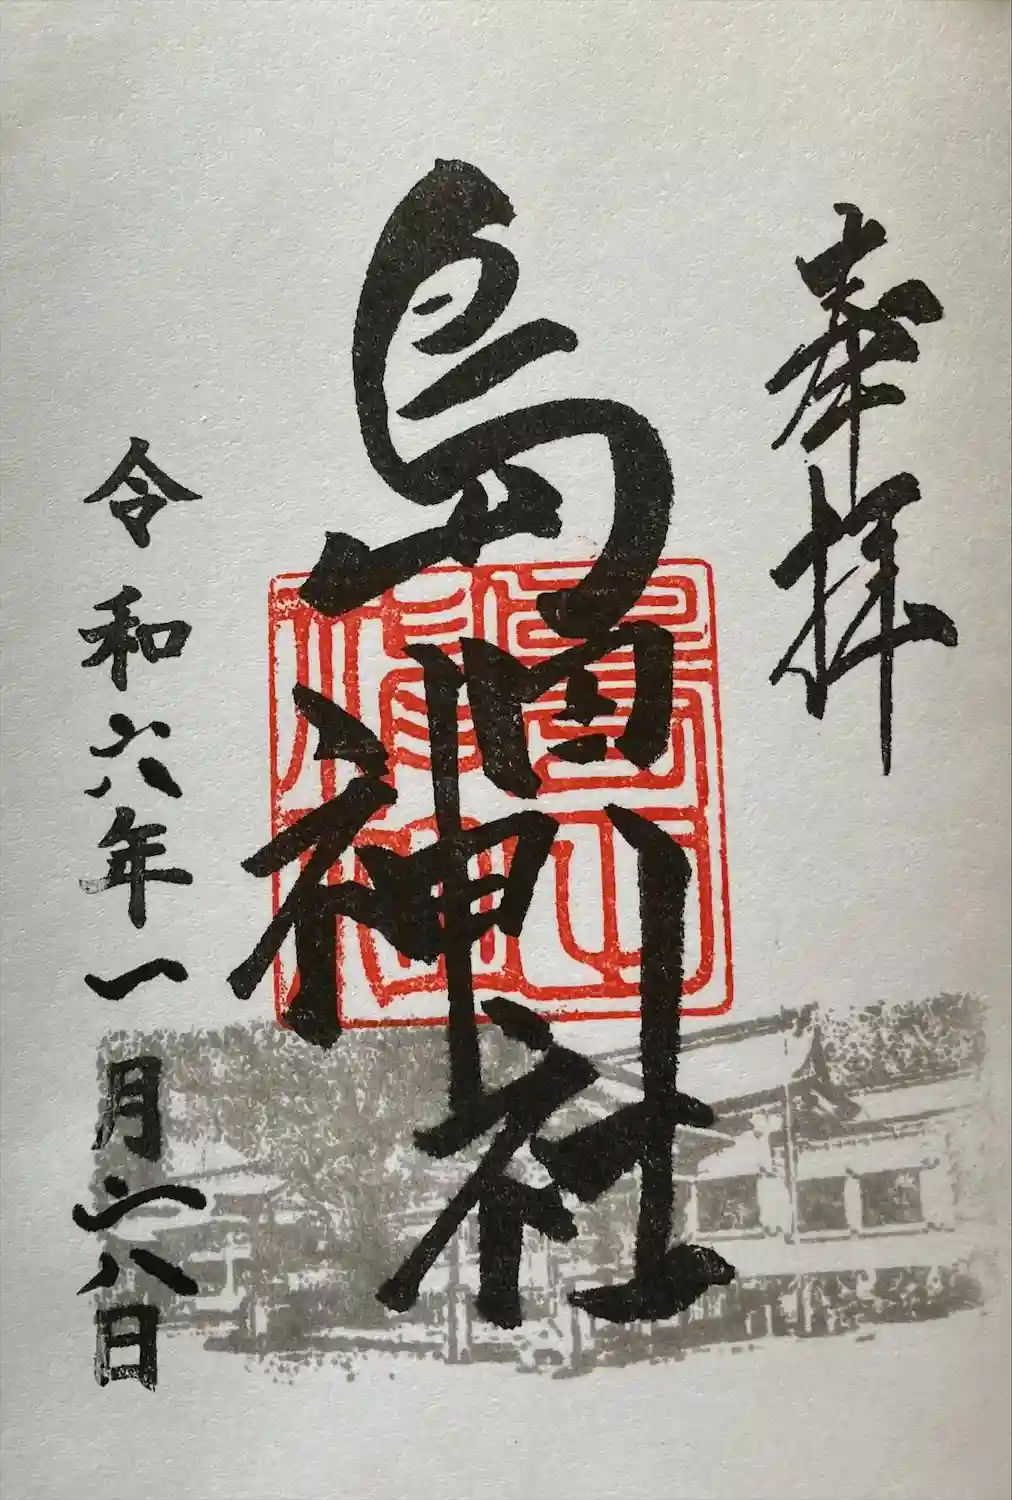 奉拝
島田神社
令和六年一月二八日